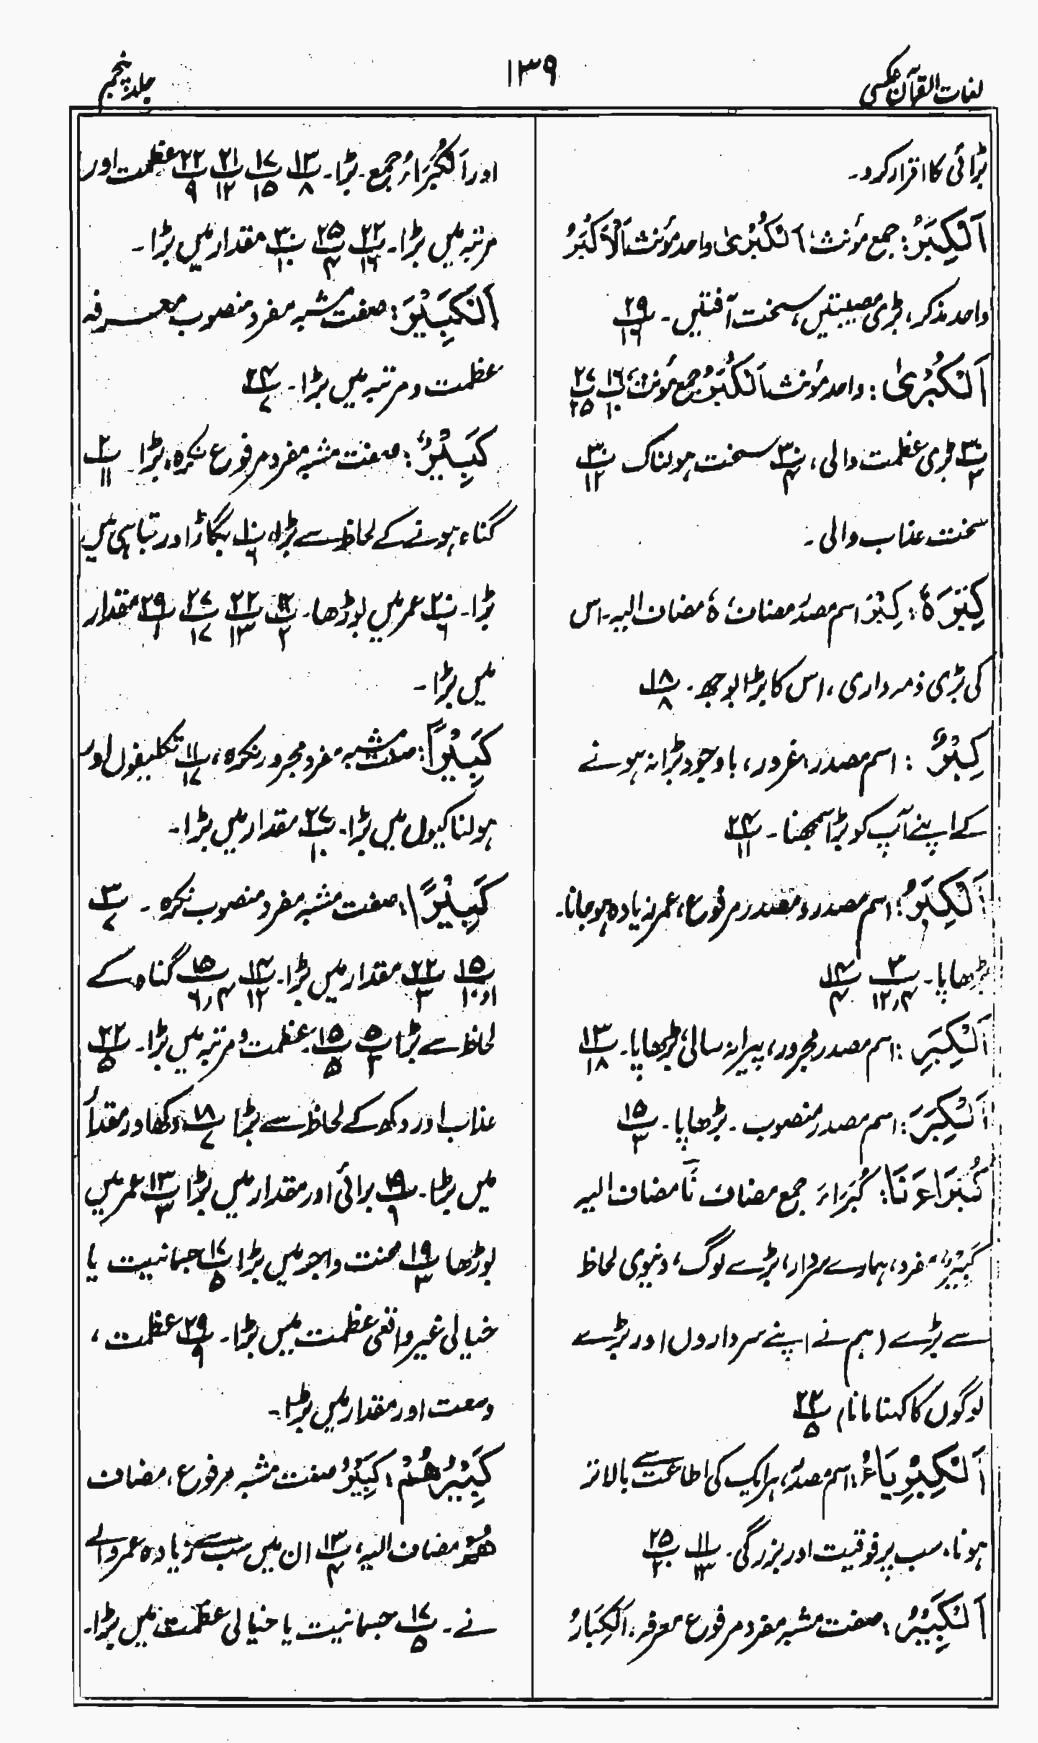 لغات القرآن عکسی
۱۳۹
جلد پنجم
بڑائی کا اقرار کرو۔
اَلْکُبَرُ: جمع مؤنث، اَلْکُبْرٰی واحد مؤنث اَلْاَکْبَرُ
واحد مذکر، بڑی مصیبتیں، سخت آفتیں۔ ۲۹/۱۶
اَلْکُبْرٰی: واحد مؤنث اَلْکُبَرُ جمع مؤنث، ۱۶/۱۰ ۲۷/۲۵
۳۰/۲ بڑی عظمت والی، ۳۰/۴ سخت ہولناک ۳۰/۱۲
سخت عذاب والی۔
کِبْرَہٗ: کِبْرَ اسم مصدر مضاف، ہٗ مضاف الیہ۔ اس
کی بڑی ذمہ داری، اس کا بڑا بوجھ۔ ۱۸/۸
کِبْرٌ: اسم مصدر، غرور، باوجود بڑا نہ ہونے
کے اپنے آپ کو بڑا سمجھنا۔ ۲۴/۱۱
اَلْکِبَرُ: اسم مصدر و مصدر مرفوع، عمر زیادہ ہو جانا۔
بڑھاپا۔ ۳/۱۲،۴ ۱۴/۴
اَلْکِبَرِ: اسم مصدر مجرور، پیرانہ سالی، بڑھاپا۔ ۱۳/۱۸
اَلْکِبَرَ: اسم مصدر منصوب۔ بڑھاپا۔ ۱۵/۳
کُبَرَاءَنَا: کُبَرَاءَ جمع مضاف نَا مضاف الیہ
کَبِیْرٌ مفرد، ہمارے سردار، بڑے لوگ، دنیوی لحاظ
سے بڑے (ہم نے اپنے سرداروں اور بڑے
لوگوں کا کہنا مانا) ۲۲/۵
اَلْکِبْرِیَاءُ: اسم مصدر، ہر ایک کی اطاعت سے بالاتر
ہونا، سب پر فوقیت اور بزرگی۔ ۱۱/۱۳ ۲۵/۲۰
اَلْکَبِیْرُ: صفت مشبہ مفرد مرفوع معرفہ، اَلْکِبَارُ
اور اَلْکُبَرَاءُ جمع۔ بڑا۔ ۱۳/۸ ۱۷/۱۵ ۲۱/۱۲ ۲۲/۹ عظمت اور
مرتبہ میں بڑا۔ ۲۲/۱۶ ۲۵/۴ ۳۰/۱۰ مقدار میں بڑا۔
اَلْکَبِیْرَ: صفت مشبہ مفرد منصوب معرفہ
عظمت و مرتبہ میں بڑا۔ ۲۴/۷
کَبِیْرٌ: صفت مشبہ مفرد مرفوع نکرہ، بڑا ۲/۱۱
گناہ ہونے کے لحاظ سے بڑا، ۱۰/۶ بگاڑ اور تباہی میں
بڑا۔ ۲۰/۶ عمر میں بوڑھا۔ ۱۲/۲ ۲۲/۱۳ ۲۷/۱۷ ۲۹/۱ مقدار
میں بڑا۔
کَبِیْرٍ: صفت مشبہ مفرد مجرور نکرہ، ۱۱/۱۷ تکلیفوں اور
ہولناکیوں میں بڑا۔ ۲۷/۱۰ مقدار میں بڑا۔
کَبِیْرًا: صفت مشبہ مفرد منصوب نکرہ۔ ۳/۷
۱۵/۱۰،۱ ۲۲/۳ مقدار میں بڑا۔ ۱۴/۱۲ ۱۵/۶،۴ گناہ کے
لحاظ سے بڑا ۵/۲ ۱۵/۵ عظمت و مرتبہ میں بڑا۔ ۲۲/۵
عذاب اور دکھ کے لحاظ سے بڑا ۱۸/۷ دکھ اور مقدار
میں بڑا۔ ۱۹/۶ برائی اور مقدار میں بڑا ۱۳/۳ عمر میں
بوڑھا ۱۹/۳ محنت و اجر میں بڑا ۱۷/۵ جسمانیت یا
خیالی غیر واقعی عظمت میں بڑا۔ ۲۹/۹ عظمت،
وسعت اور مقدار میں بڑا۔
کَبِیْرُهُمْ: کَبِیْرُ صفت مشبہ مرفوع، مضاف
هُمْ مضاف الیہ، ۱۳/۴ ان میں سب سے زیادہ عمر والے
نے۔ ۱۷/۵ جسمانیت یا خیالی عظمت میں بڑا۔